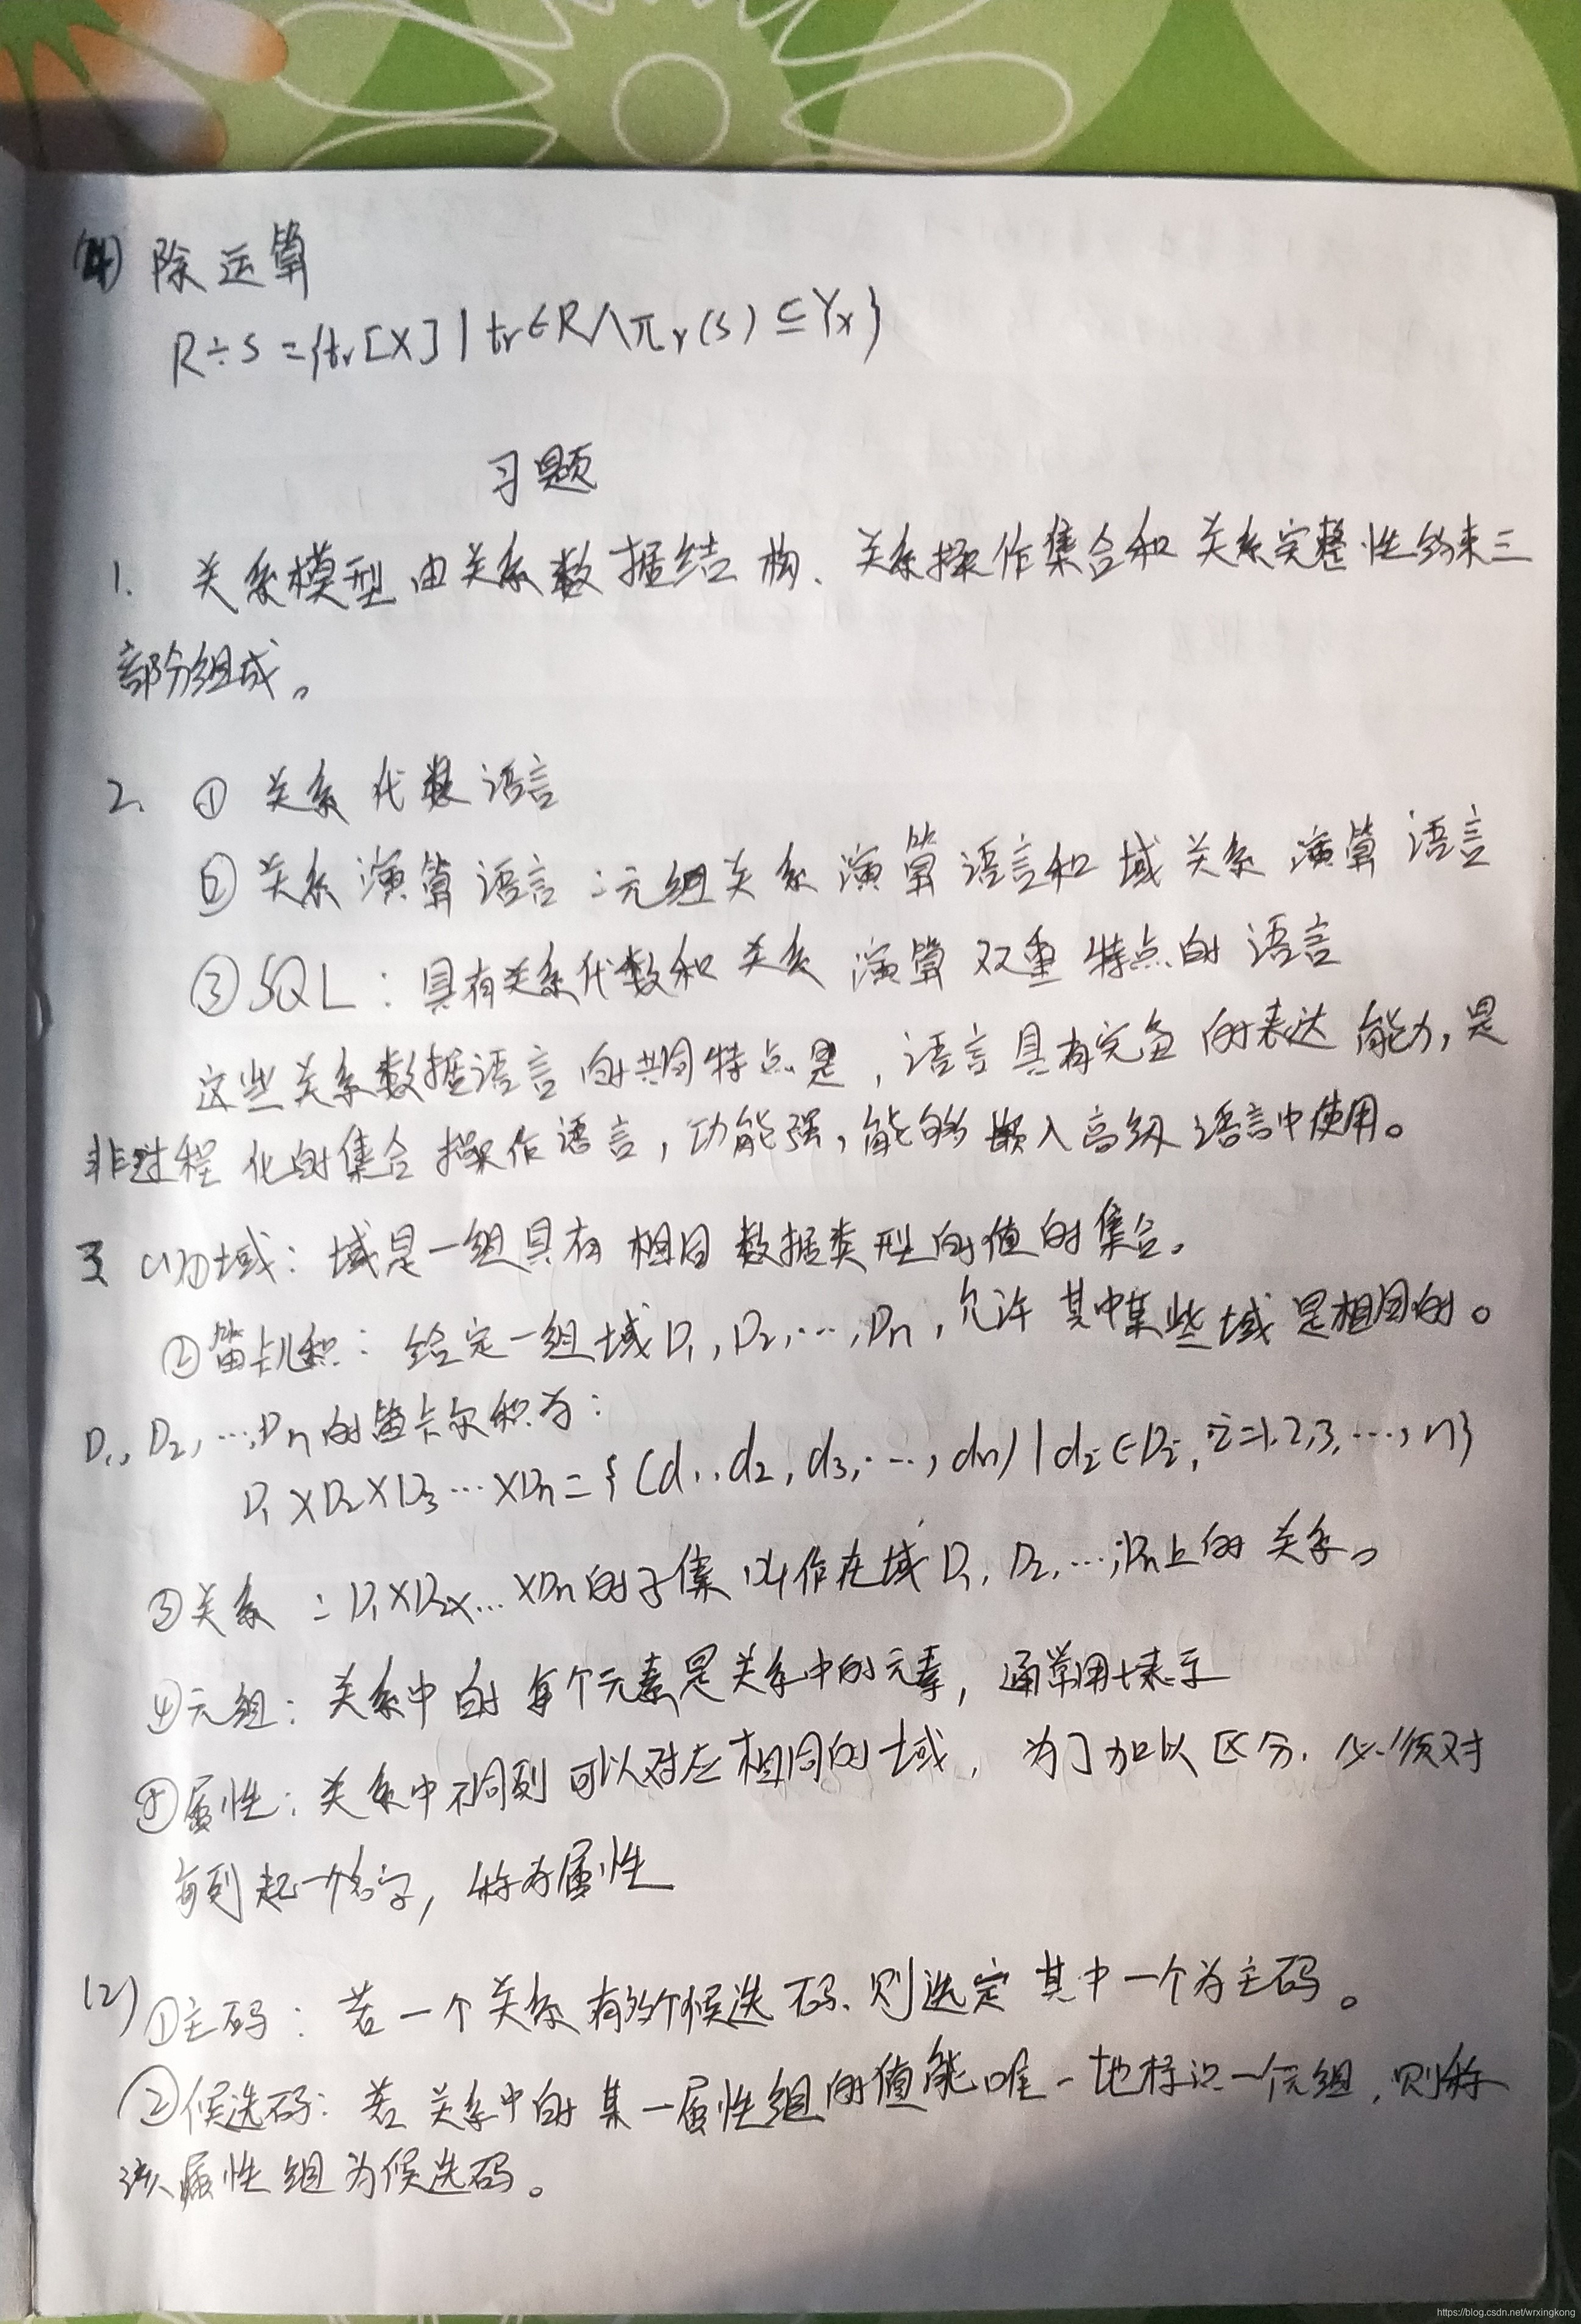 (4) 除运算
R÷S={tr[X]|tr∈R∧πY(S)⊆Yx}
习题
1. 关系模型由关系数据结构、关系操作集合和关系完整性约束三
部分组成。
2. ① 关系代数语言
② 关系演算语言:元组关系演算语言和域关系演算语言
③ SQL:具有关系代数和关系演算双重特点的语言
这些关系数据语言的共同特点是,语言具有完备的表达能力,是
非过程化的集合操作语言,功能强,能够嵌入高级语言中使用。
3 (1)①域:域是一组具有相同数据类型的值的集合。
②笛卡儿积:给定一组域D1,D2,…,Dn,允许其中某些域是相同的。
D1,D2,…,Dn的笛卡尔积为:
D1×D2×D3…×Dn={(d1,d2,d3,…,dn)|di∈Di,i=1,2,3,…,n}
③关系:D1×D2×…×Dn的子集叫作在域D1,D2,…,Dn上的关系。
④元组:关系中的每个元素是关系中的元素,通常用t表示
⑤属性:关系中不同列可以对应相同的域,为了加以区分,必须对
每列起一个名字,称为属性
(2) ①主码:若一个关系有多个候选码,则选定其中一个为主码。
②候选码:若关系中的某一属性组的值能唯一地标识一个元组,则称
该属性组为候选码。
https://blog.csdn.net/wrxingkong